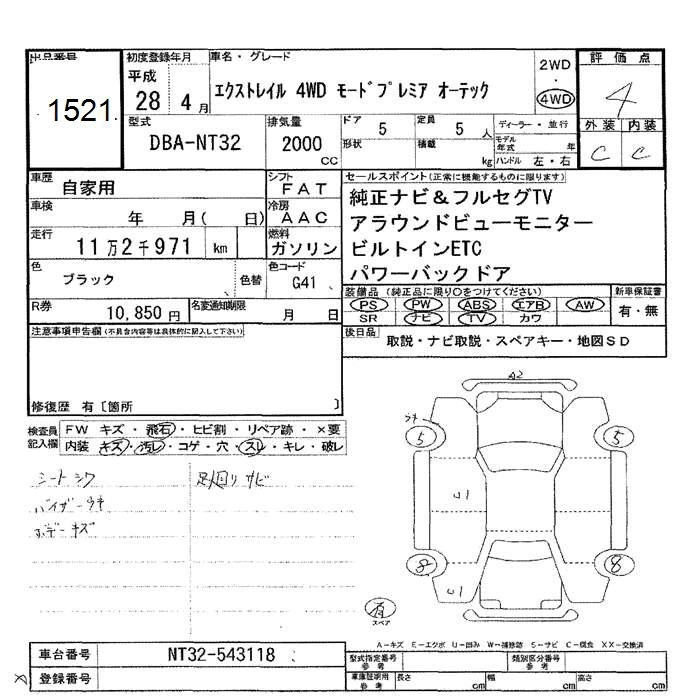 出品番号
1521
初度登録年月
平成
28 4 月
車名・グレード
エクストレイル 4WD モードプレミア オーテック
2WD
4WD
評価点
4
外装 内装
C C
型式
DBA-NT32
排気量
2000
CC
ドア
5
定員
5 人
形状
積載
kg
ディーラー・並行
モデル
年式 年
ハンドル 左・右
車歴
自家用
シフト
FAT
車検
年 月( 日)
冷房
AAC
走行
11万2千971 km
燃料
ガソリン
色
ブラック
色替
色コード
G41
R券
10,850円
名変通知期限
月 日
セールスポイント(正常に機能するものに限ります)
純正ナビ&フルセグTV
アラウンドビューモニター
ビルトインETC
パワーバックドア
装備品 (純正品に限り○をつけてください)
PS PW ABS エアB AW
SR ナビ TV カワ
新車保証書
有・無
後日品
取説・ナビ取説・スペアキー・地図SD
注意事項申告欄(不具合内容等は具体的に記入して下さい)
修復歴 有〔箇所 〕
検査員
記入欄
FW キズ・飛石・ヒビ割・リペア跡・×要
内装 キズ・汚レ・コゲ・穴・スレ・キレ・破レ
シートシワ
バイザーウキ
ボデーキズ
足回りサビ
A2
ウキ
5
5
U1
8
8
U1
有
スペア
A-キズ E-エクボ U-凹み W-補修跡 S-サビ C-腐食 XX-交換済
車台番号
NT32-543118
登録番号
型式指定番号
参考
類別区分番号
参考
車庫証明用
参考
長さ cm
幅 cm
高さ cm